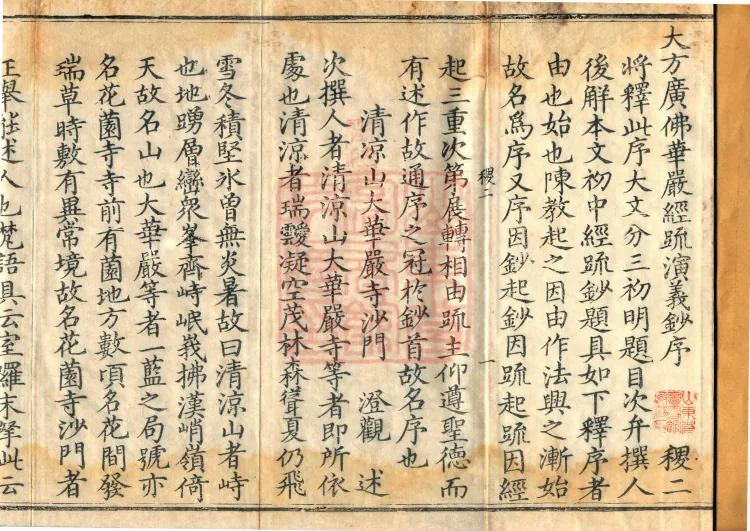 大方廣佛華嚴經䟽演義鈔序 稷二
將釋此序大文分三初明題目次弁撰人
後解本文初中經䟽鈔題具如下釋序者
由也始也陳教起之因由作法興之漸始
故名爲序又序因鈔起鈔因䟽起䟽因經
稷二
一
起三重次第展轉相由䟽主仰遵聖德而
有述作故通序之冠於鈔首故名序也
清涼山大華嚴寺沙門 澄觀 述
次撰人者清涼山大華嚴寺等者即所依
處也清涼者瑞靉凝空茂林森聳夏仍飛
雪冬積堅氷曾無炎暑故曰清涼山者峙
也地踴層巒衆峯齊峙岷峩拂漢峭嶺倚
天故名山也大華嚴等者一藍之局號亦
名花薗寺寺前有薗地方數頃名花間發
瑞草時敷有異常境故名花薗寺沙門者
正舉能述人也梵語具云室羅末拏此云